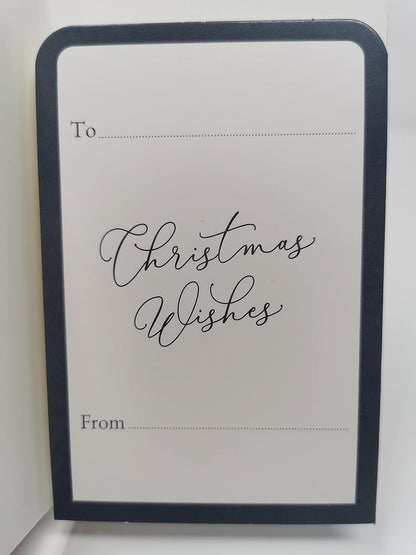 To..............................................................
Christmas
Wishes
From......................................................